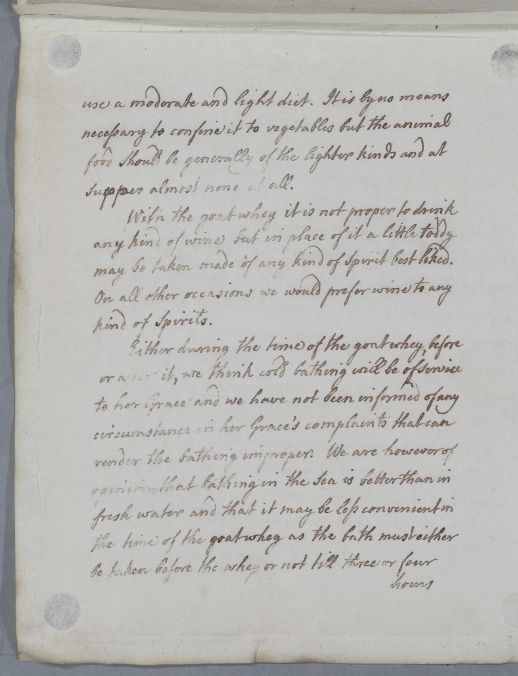 use a moderate and light diet. It is by no means
necessary to confine it to vegetables but the animal
food should be generally of the lighter kinds and at
supper almost none at all.
With the goat whey it is not proper to drink
any kind of wine but in place of it a little toddy
may be taken made of any kind of spirit best liked.
On all other occasions we would prefer wine to any
kind of Spirits.
Either during the time of the goat whey, before
or after it, we think cold bathing will be of service
to her Grace and we have not been informed of any
circumstance in her Grace's complaints that can
render the bathing improper. We are however of
opinion, that bathing in the Sea is better than in
fresh water and that it may be less convenient in
the time of the goat whey as the bath must either
be taken before the whey or not till three or four
hours